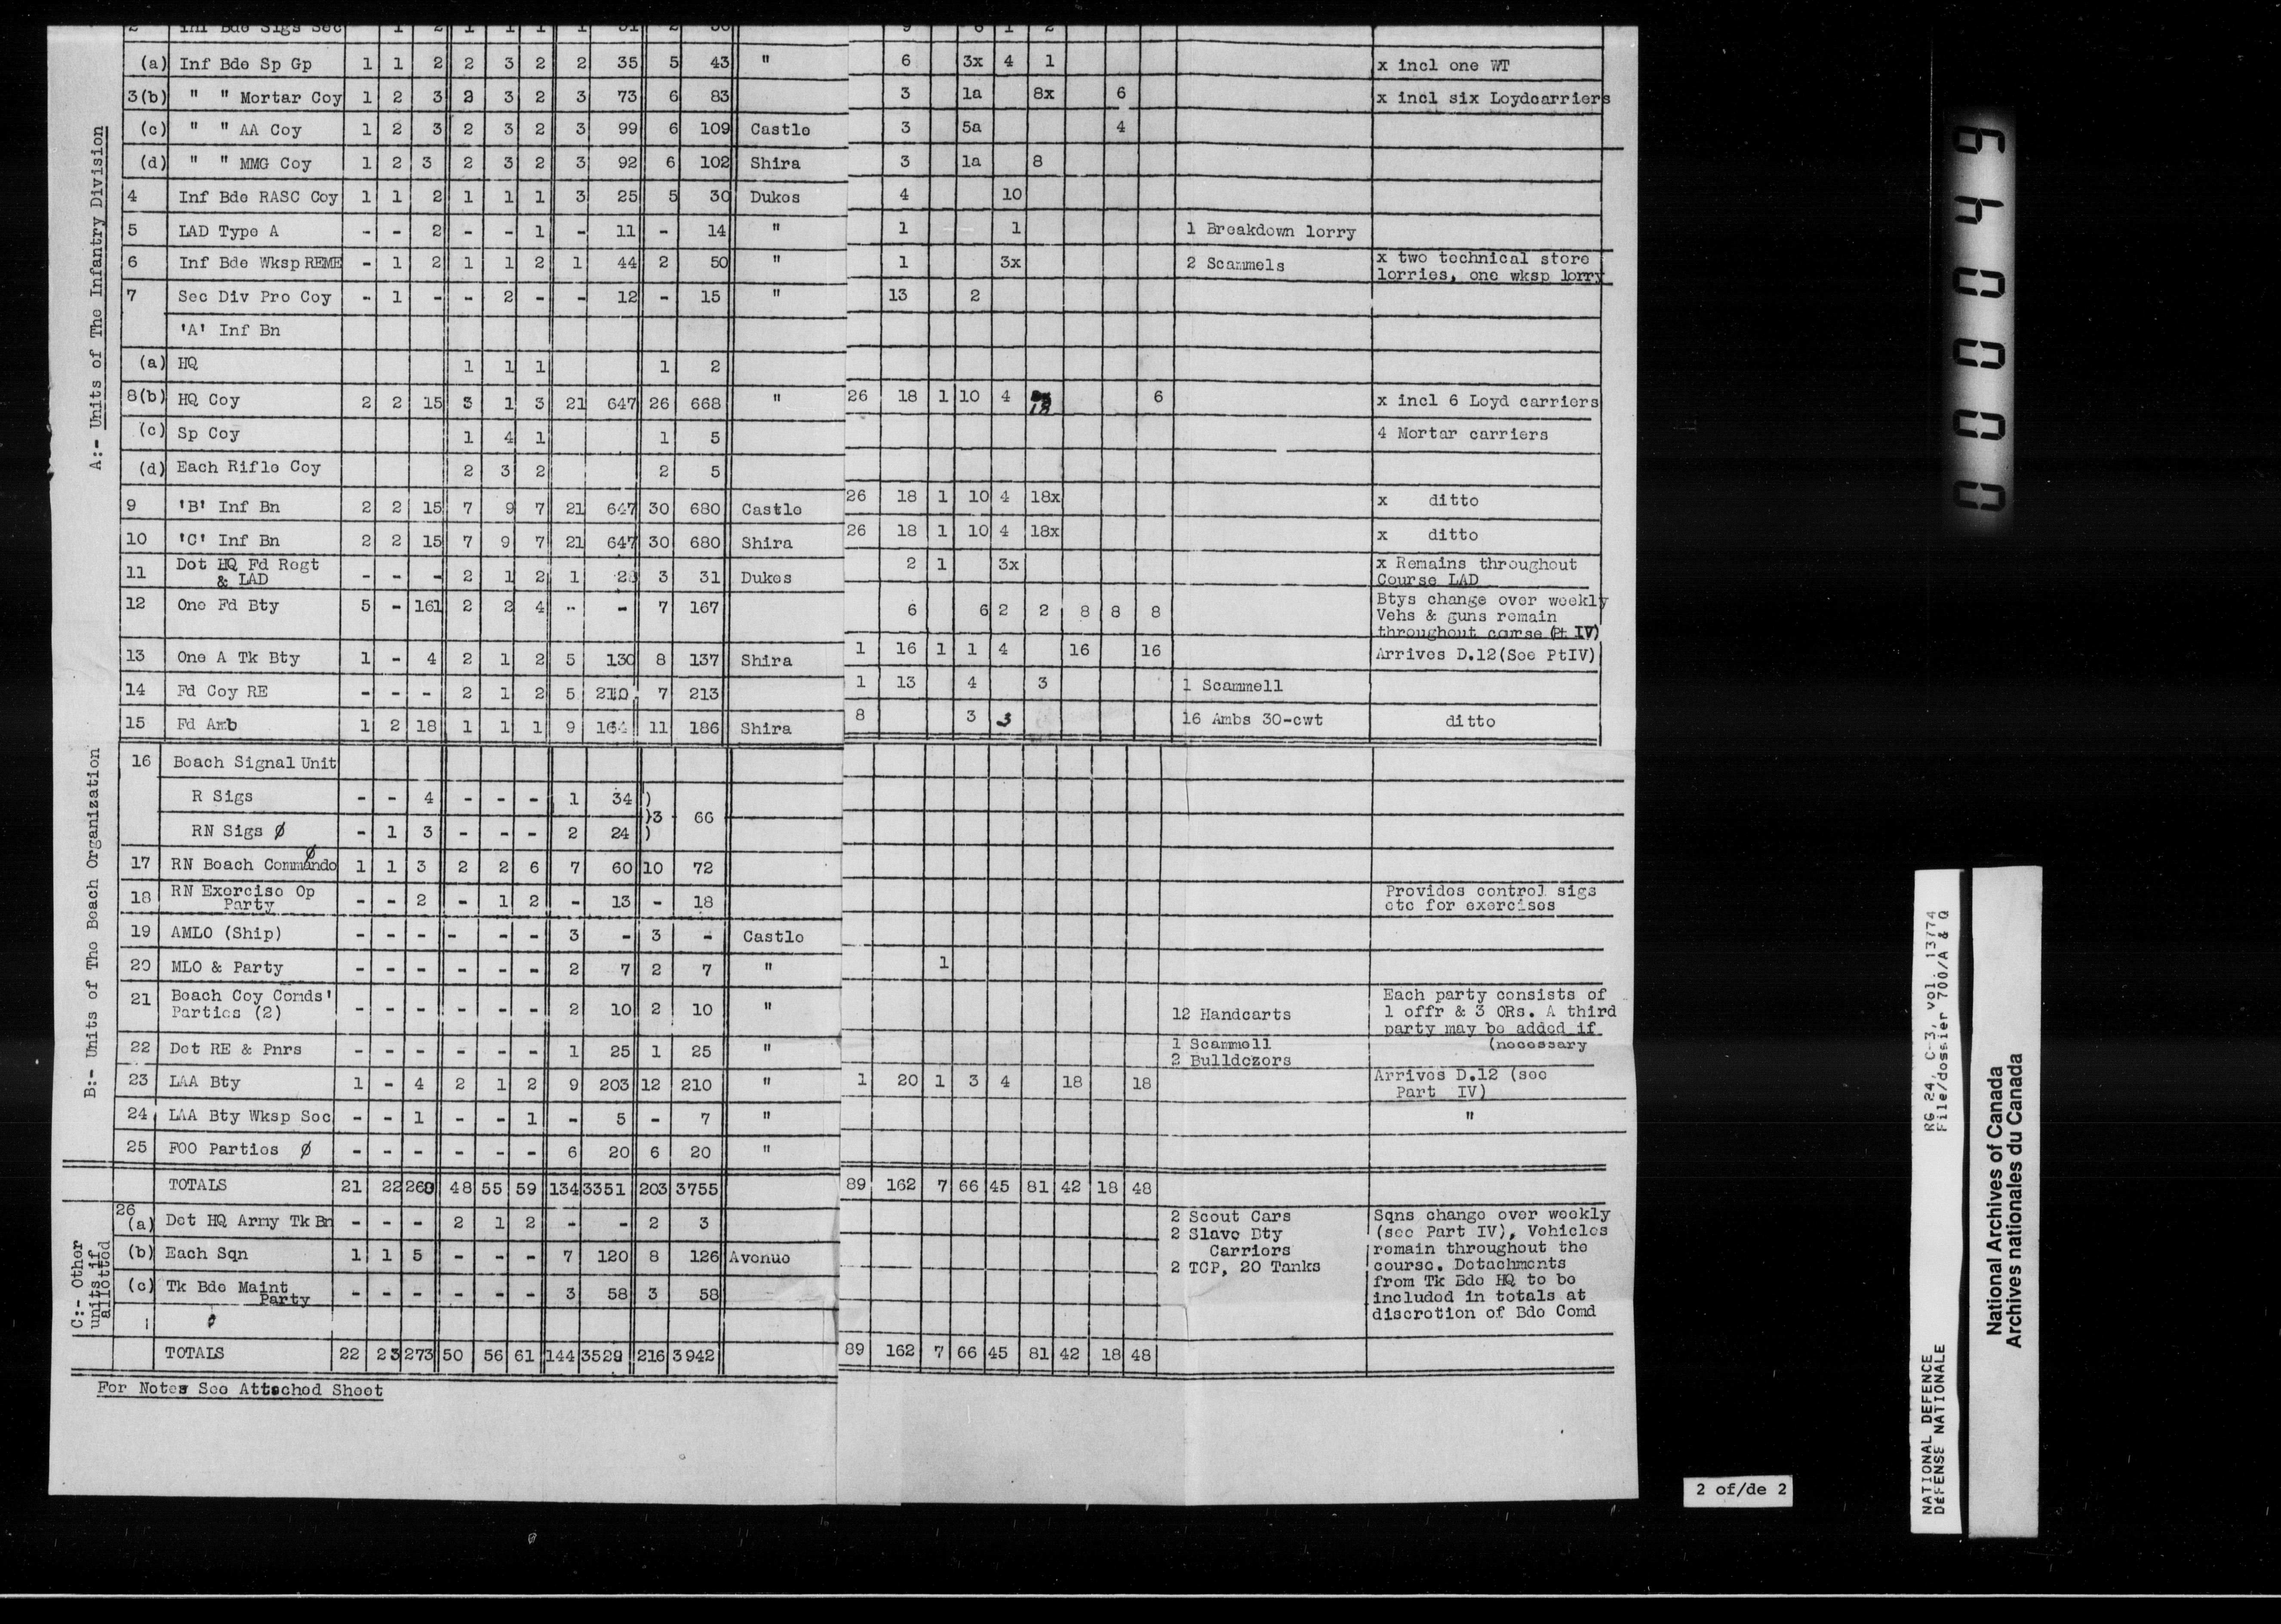 A:- Units of The Infantry Division
(a) Inf Bde Sp Gp 1 1 2 2 3 2 2 35 5 43 " 6 3x 4 1 x incl one WT
3(b) " " Mortar Coy 1 2 3 2 3 2 3 73 6 83 3 1a 8x 6 x incl six Loydcarriers
(c) " " AA Coy 1 2 3 2 3 2 3 99 6 109 Castle 3 5a 4
(d) " " MMG Coy 1 2 3 2 3 2 3 92 6 102 Shira 3 1a 8
4 Inf Bde RASC Coy 1 1 2 1 1 1 3 25 5 30 Dukes 4 10
5 LAD Type A - - 2 - - 1 - 11 - 14 " 1 1 1 Breakdown lorry
6 Inf Bde Wksp REME - 1 2 1 1 2 1 44 2 50 " 1 3x 2 Scammels x two technical store
lorries, one wksp lorry
7 Sec Div Pro Coy - 1 - - 2 - - 12 - 15 " 13 2
'A' Inf Bn
(a) HQ 1 1 1 1 2
8(b) HQ Coy 2 2 15 3 1 3 21 647 26 668 " 26 18 1 10 4 18 6 x incl 6 Loyd carriers
(c) Sp Coy 1 4 1 1 5 4 Mortar carriers
(d) Each Rifle Coy 2 3 2 2 5
9 'B' Inf Bn 2 2 15 7 9 7 21 647 30 680 Castle 26 18 1 10 4 18x x ditto
10 'C' Inf Bn 2 2 15 7 9 7 21 647 30 680 Shira 26 18 1 10 4 18x x ditto
11 Det HQ Fd Regt
& LAD - - - 2 1 2 1 28 3 31 Dukes 2 1 3x x Remains throughout
Course LAD
12 One Fd Bty 5 - 161 2 2 4 - - 7 167 6 6 2 2 8 8 8 Btys change over weekly
Vehs & guns remain
throughout course (Pt IV)
13 One A Tk Bty 1 - 4 2 1 2 5 130 8 137 Shira 1 16 1 1 4 16 16 Arrives D.12(See PtIV)
14 Fd Coy RE - - - 2 1 2 5 210 7 213 1 13 4 3 1 Scammell
15 Fd Amb 1 2 18 1 1 1 9 164 11 186 Shira 8 3 3 16 Ambs 30-cwt ditto
B:- Units of The Beach Organization
16 Beach Signal Unit
R Sigs - - 4 - - - 1 34 )
)3 66
RN Sigs ø - 1 3 - - - 2 24 )
17 RN Beach Commando ø 1 1 3 2 2 6 7 60 10 72
18 RN Exercise Op
Party - - 2 - 1 2 - 13 - 18 Provides control sigs
etc for exercises
19 AMLO (Ship) - - - - - - 3 - 3 - Castle
20 MLO & Party - - - - - - 2 7 2 7 " 1
21 Beach Coy Comds'
Parties (2) - - - - - - 2 10 2 10 " 12 Handcarts Each party consists of
1 offr & 3 ORs. A third
party may be added if
(necessary
22 Det RE & Pnrs - - - - - - 1 25 1 25 " 1 Scammell
2 Bulldozors
23 LAA Bty 1 - 4 2 1 2 9 203 12 210 " 1 20 1 3 4 18 18 Arrives D.12 (see
Part IV)
24 LAA Bty Wksp Sec - - 1 - - 1 - 5 - 7 " "
25 FOO Parties ø - - - - - - 6 20 6 20 "
TOTALS 21 22 268 48 55 59 134 3351 203 3755 89 162 7 66 45 81 42 18 48
C:- Other
units if
allotted
26
(a) Det HQ Army Tk Bn - - - 2 1 2 - - 2 3 2 Scout Cars
2 Slave Bty
Carriers
2 TCP, 20 Tanks
(b) Each Sqn 1 1 5 - - - 7 120 8 126 Avenue
(c) Tk Bde Maint
Party - - - - - - 3 58 3 58
Sqns change over weekly
(see Part IV), Vehicles
remain throughout the
course. Detachments
from Tk Bde HQ to be
included in totals at
discretion of Bde Comd
TOTALS 22 23 273 50 56 61 144 3529 216 3942 89 162 7 66 45 81 42 18 48
For Notes See Attached Sheet
000049
RG 24, C-3, vol. 13774
File/dossier 700/A & Q
NATIONAL DEFENCE
DéFENSE NATIONALE
National Archives of Canada
Archives nationales du Canada
2 of/de 2